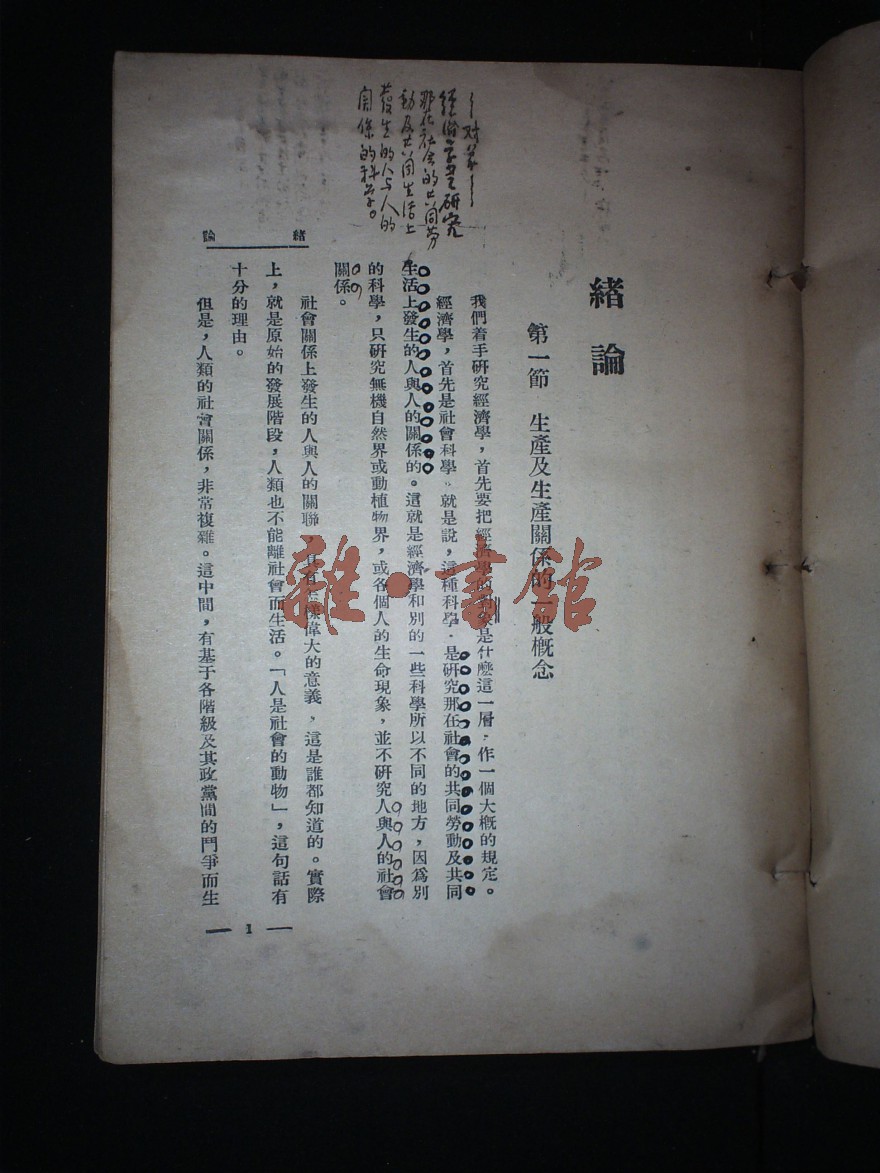 緒論
第一節　生產及生產關係的一般槪念
我們着手硏究經濟學，首先要把經濟學的對象是什麼這一層，作一個大槪的規定。
經濟學，首先是社會科學。就是說，這種科學，是硏究那在社會的共同勞動及共同
生活上發生的人與人的關係的。這就是經濟學和別的一些科學所以不同的地方，因爲別
的科學，只硏究無機自然界或動植物界，或各個人的生命現象，並不硏究人與人的社會
關係。
社會關係上發生的人與人的關聯，具有怎樣偉大的意義，這是誰都知道的。實際
上，就是原始的發展階段，人類也不能離社會而生活。「人是社會的動物」，這句話有
十分的理由。
但是，人類的社會關係，非常複雜。這中間，有基于各階級及其政黨間的鬥爭而生
緒論
— 1 —
对象
經濟学是研究
那在社会的共同劳
動及共同生活上
發生的人与人的
関係的科学。
雜·書館